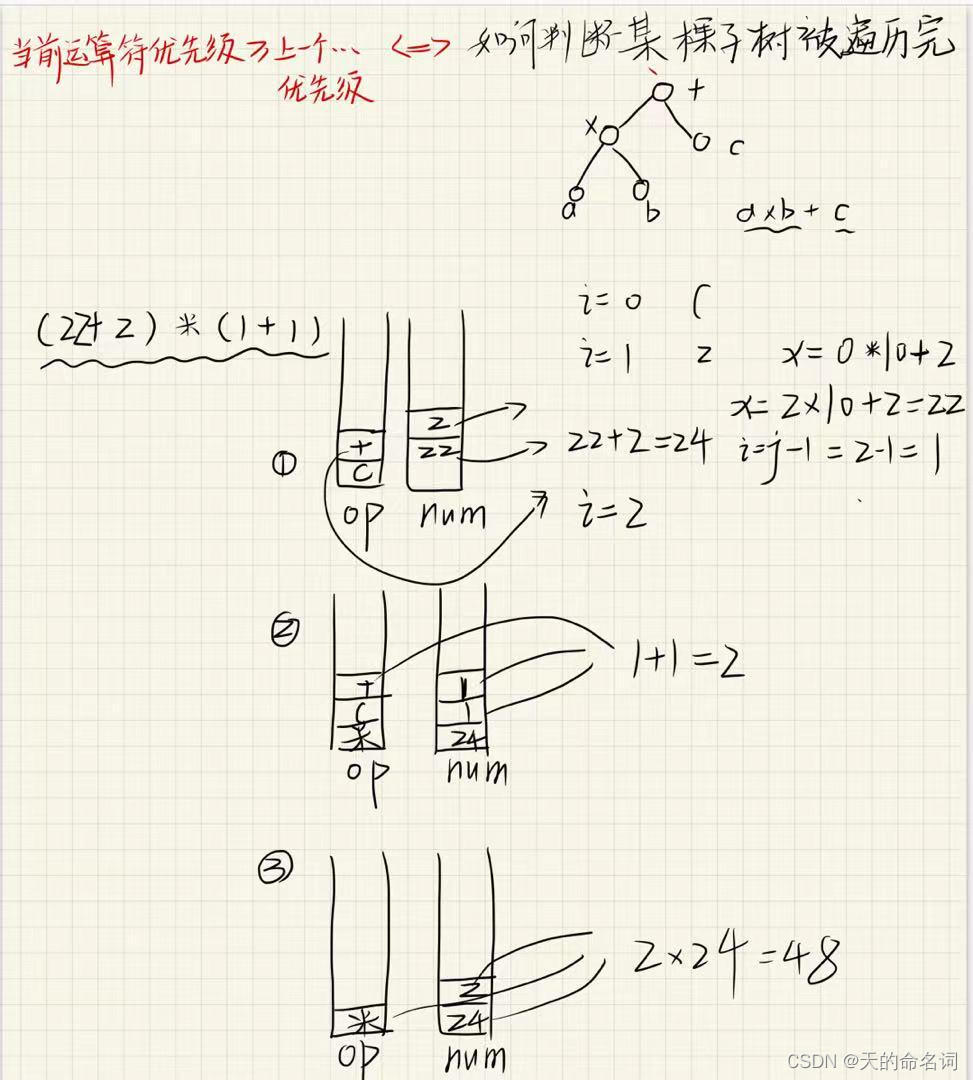 当前运算符优先级 上一个… <=> 如何判断某棵子树被遍历完
优先级
+
×
c
a
b
a×b + c
i=0 (
(22+2) * (1+1)
i=1 2 x=0*10+2
x=2×10+2=22
2
+
22
22+2=24 i=j-1=2-1=1
①
(
op num i=2
②
1+1=2
+
1
(
1
*
24
op num
③
2×24=48
2
*
24
op num
CSDN @天的命名词